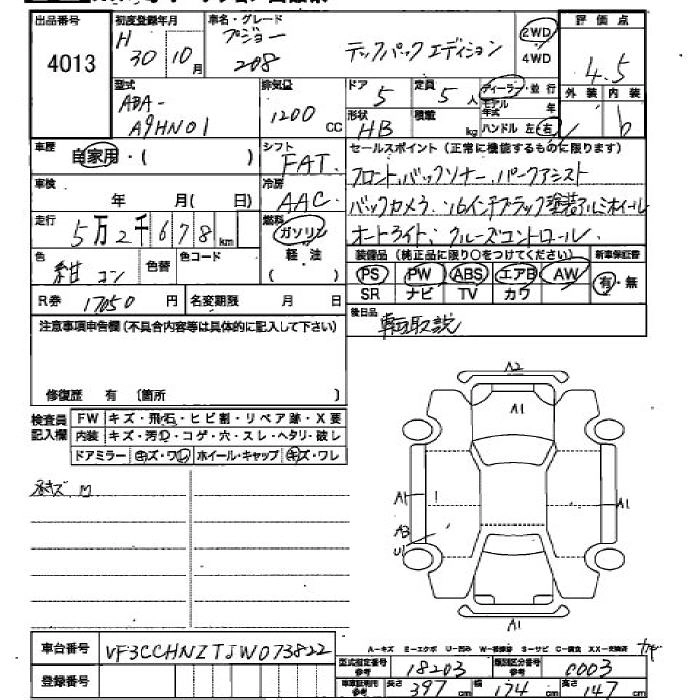 出品番号 初度登録年月 車名・グレード 評価点
4013 H 30 10月 プジョー 208 テックパックエディション 2WD 4WD 4.5
型式 排気量 ドア 定員 ディーラー・並行 外装 内装
ABA- A9HN01 1200 CC 5 5人 モデル年式 年 b
形状 HB 積載 kg ハンドル 左・右
車歴 自家用・( ) シフト FAT. セールスポイント(正常に機能するものに限ります)
フロント,バックソナー、パークアシスト
車検 年 月( 日) 冷房 AAC.
バックカメラ. 16インチブラック塗装アルミホイール
走行 5万2千678km 燃料 ガソリン 軽油 ( )
オートライト、クルーズコントロール.
色 紺 コン 色替 色コード
装備品(純正品に限り○をつけてください) 新車保証書
PS PW ABS エアB AW 有・無
SR ナビ TV カワ
R券 17050円 名変期限 月 日
後日品
注意事項申告欄(不具合内容等は具体的に記入して下さい)
修復歴 有 (箇所 )
検査員記入欄 FW キズ・飛石・ヒビ割・リペア跡・X要
内装 キズ・汚り・コゲ・穴・スレ・ヘタリ・破レ
ドアミラー キズ・ワレ ホイール・キャップ キズ・ワレ
A2
A1
A1
A1
A3
U1
A1
A-キズ E-エクボ U-凹み W-補修跡 S-サビ C-腐食 XX-交換済
車台番号 VF3CCHNZTJW073822
型式指定番号 参考 18203 類別区分番号 参考 0003
登録番号
車庫証明用 参考 長さ 397cm 幅 174cm 高さ 147cm